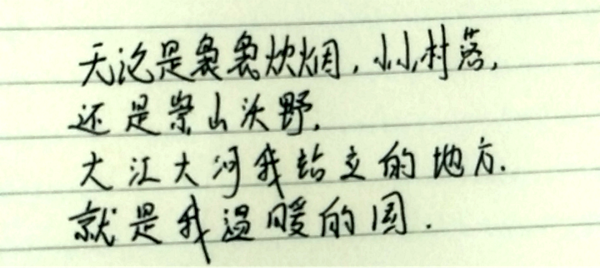 无论是袅袅炊烟,小小村落,
还是崇山沃野,
大江大河我站立的地方.
就是我温暖的国.